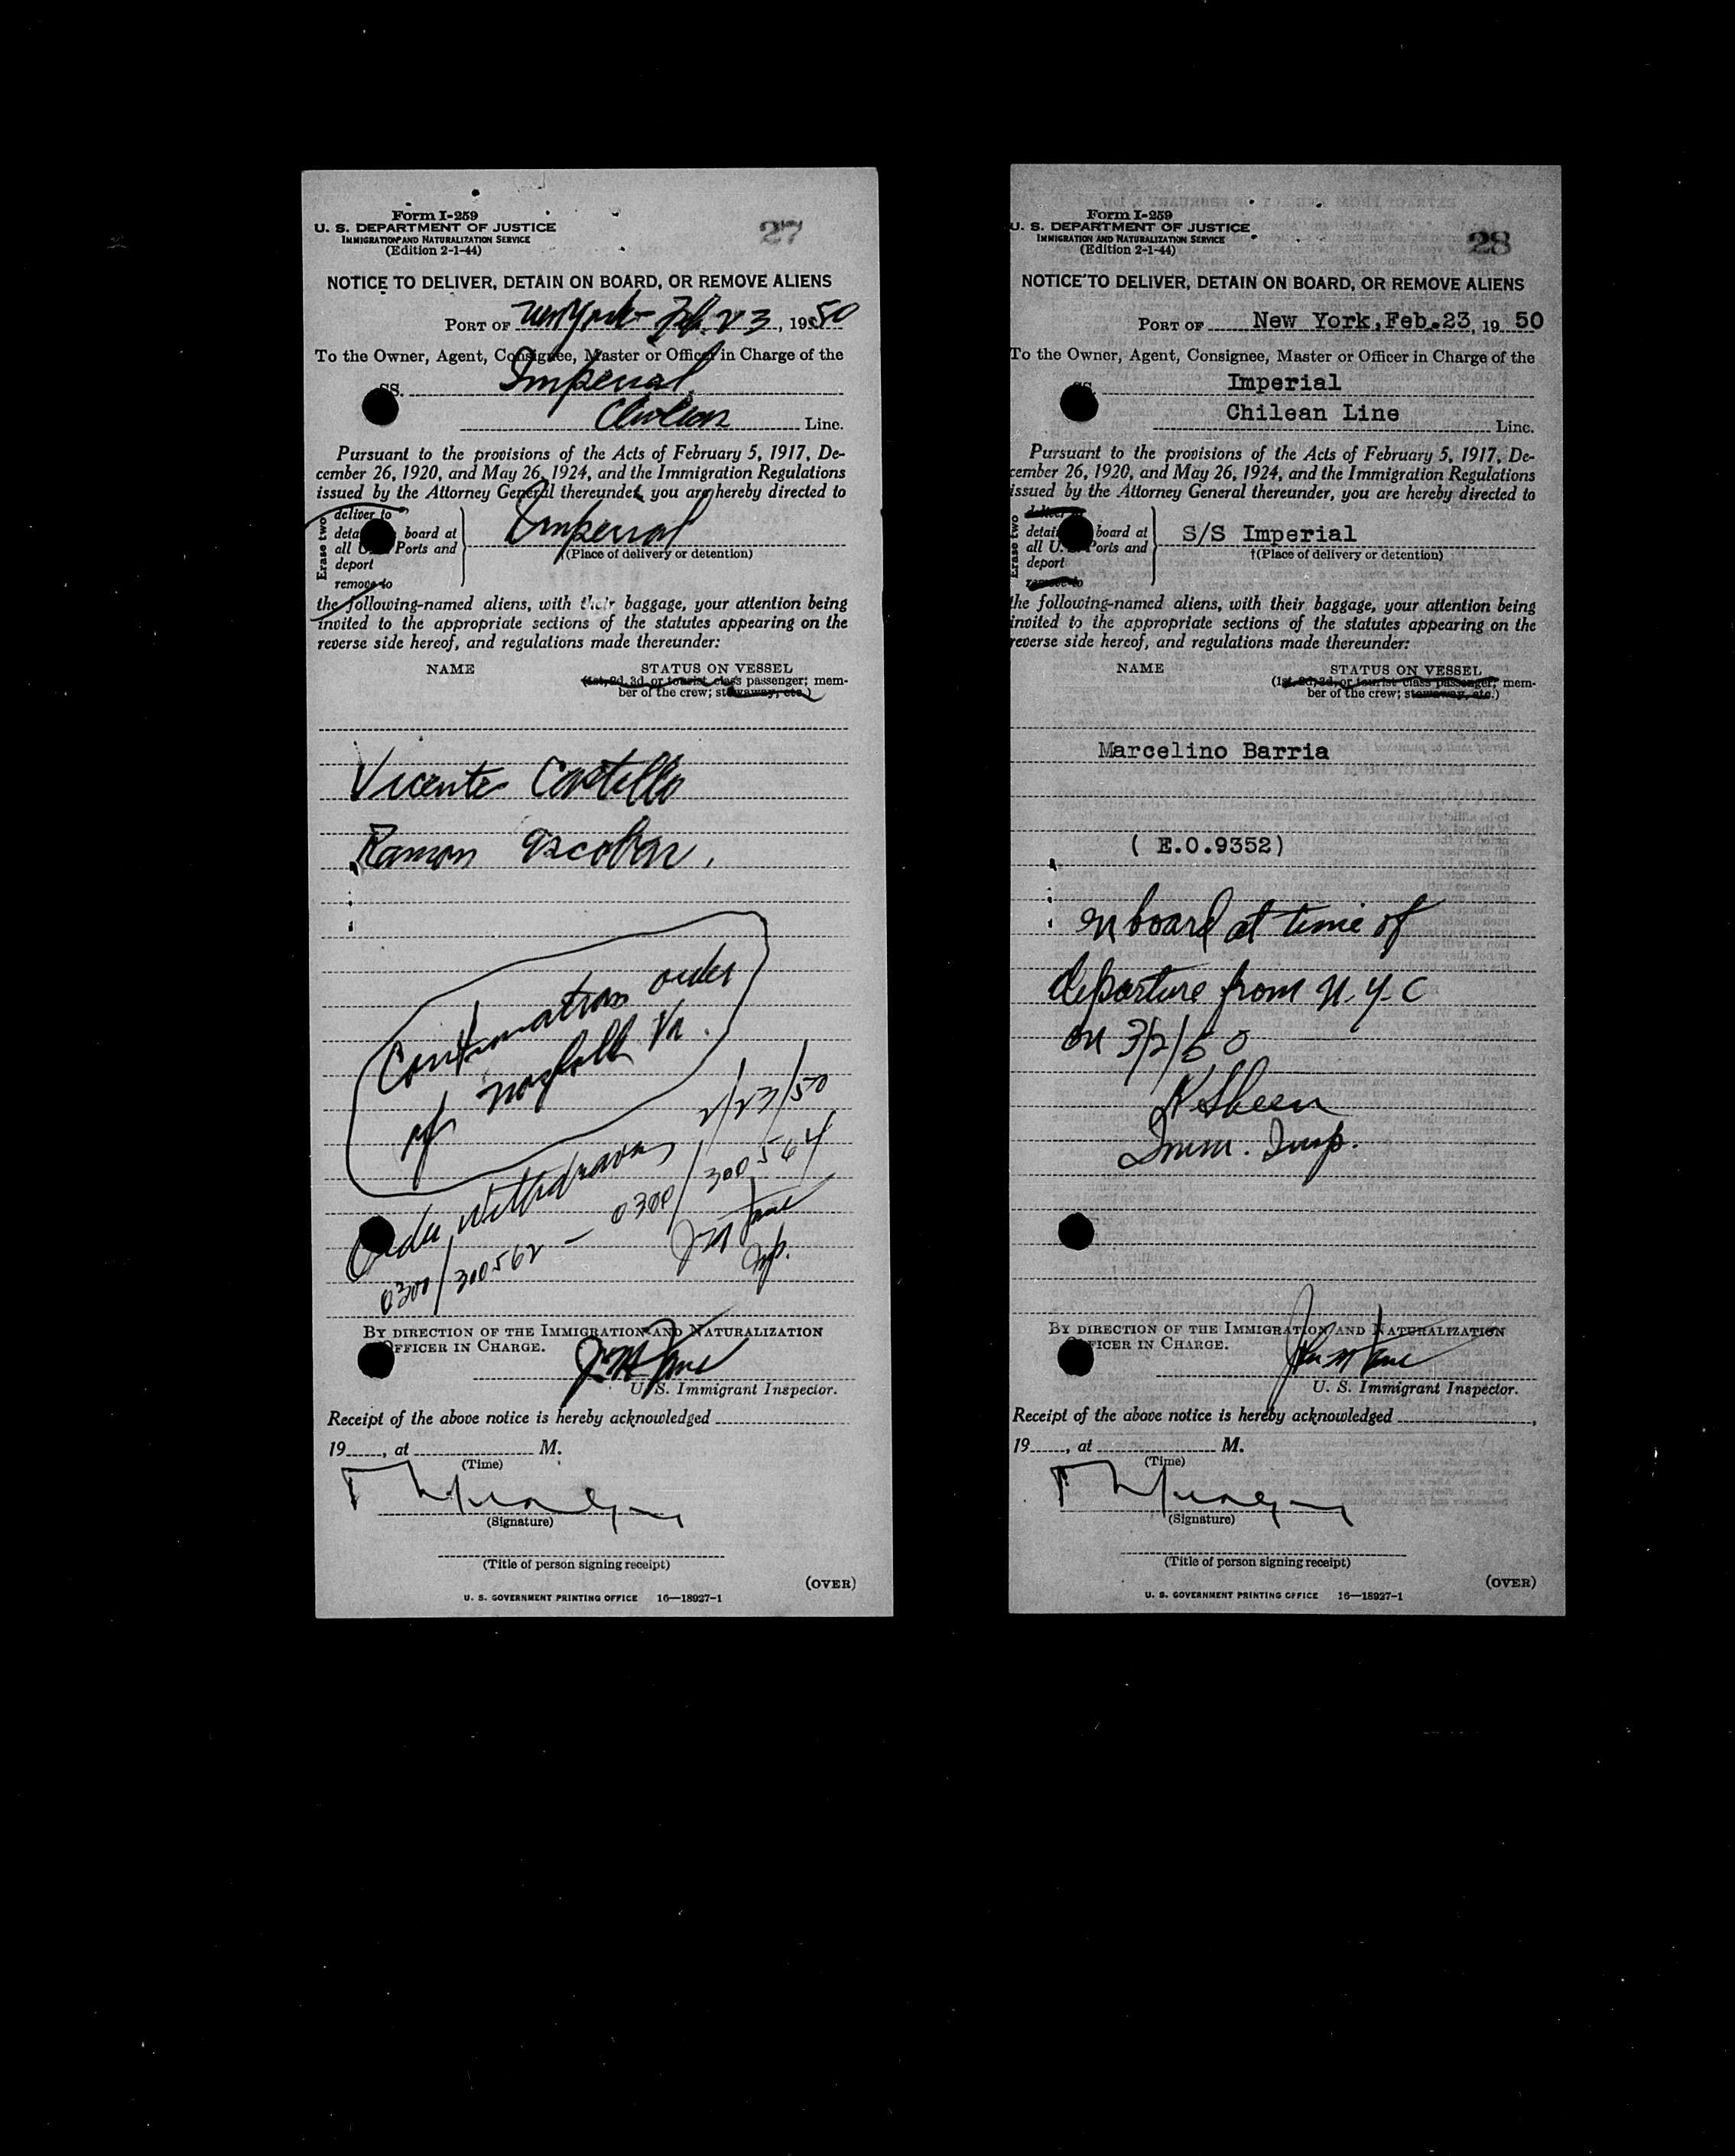 Form I-259
U. S. DEPARTMENT OF JUSTICE
IMMIGRATION AND NATURALIZATION SERVICE
(Edition 2-1-44)
27
NOTICE TO DELIVER, DETAIN ON BOARD, OR REMOVE ALIENS
PORT OF New York Feb. 23, 1950
To the Owner, Agent, Consignee, Master or Officer in Charge of the
SS. Imperial
Chilean Line.
Pursuant to the provisions of the Acts of February 5, 1917, De-
cember 26, 1920, and May 26, 1924, and the Immigration Regulations
issued by the Attorney General thereunder, you are hereby directed to
Erase two
deliver to
deta board at
all U. Ports and
deport
remove to
Imperial
(Place of delivery or detention)
the following-named aliens, with their baggage, your attention being
invited to the appropriate sections of the statutes appearing on the
reverse side hereof, and regulations made thereunder:
NAME STATUS ON VESSEL
(1st, 2d, 3d, or tourist class passenger; mem-
ber of the crew; stowaway, etc.)
Vicente Castello
Ramon Escobar.
Continuation order
of Norfolk Va.
Order withdrawn 2/23/50
0300/300562 - 0300/300564
J M Fane
Insp.
BY DIRECTION OF THE IMMIGRATION AND NATURALIZATION
OFFICER IN CHARGE.
U. S. Immigrant Inspector.
Receipt of the above notice is hereby acknowledged
19 , at M.
(Time)
(Signature)
(Title of person signing receipt)
(OVER)
U. S. GOVERNMENT PRINTING OFFICE 16—18927-1
Form I-259
U. S. DEPARTMENT OF JUSTICE
IMMIGRATION AND NATURALIZATION SERVICE
(Edition 2-1-44)
28
NOTICE TO DELIVER, DETAIN ON BOARD, OR REMOVE ALIENS
PORT OF New York, Feb. 23, 19 50
To the Owner, Agent, Consignee, Master or Officer in Charge of the
SS. Imperial
Chilean Line
Line.
Pursuant to the provisions of the Acts of February 5, 1917, De-
cember 26, 1920, and May 26, 1924, and the Immigration Regulations
issued by the Attorney General thereunder, you are hereby directed to
Erase two
deliver to
detai board at
all U. S. Ports and
deport
remove to
S/S Imperial
†(Place of delivery or detention)
the following-named aliens, with their baggage, your attention being
invited to the appropriate sections of the statutes appearing on the
reverse side hereof, and regulations made thereunder:
NAME STATUS ON VESSEL
(1st, 2d, 3d, or tourist class passenger; mem-
ber of the crew; stowaway, etc.)
Marcelino Barria
( E.O.9352)
on board at time of
departure from N.Y.C
on 3/2/50
K Sheen
Imm. Insp.
BY DIRECTION OF THE IMMIGRATION AND NATURALIZATION
OFFICER IN CHARGE.
U. S. Immigrant Inspector.
Receipt of the above notice is hereby acknowledged ,
19 , at M.
(Time)
(Signature)
(Title of person signing receipt)
(OVER)
U. S. GOVERNMENT PRINTING OFFICE 16—18927-1